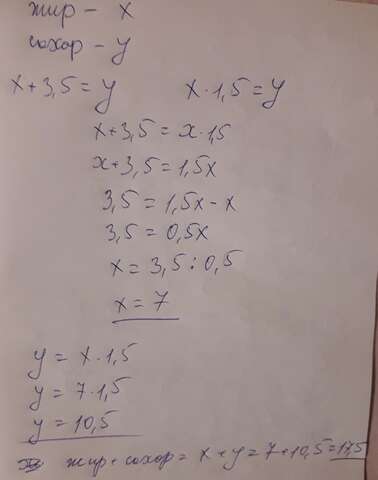 жир – x
сахар – y
x + 3,5 = y x · 1,5 = y
x + 3,5 = x · 1,5
x + 3,5 = 1,5x
3,5 = 1,5x – x
3,5 = 0,5x
x = 3,5 : 0,5
x = 7
y = x · 1,5
y = 7 · 1,5
y = 10,5
жир + сахар = x + y = 7 + 10,5 = 17,5